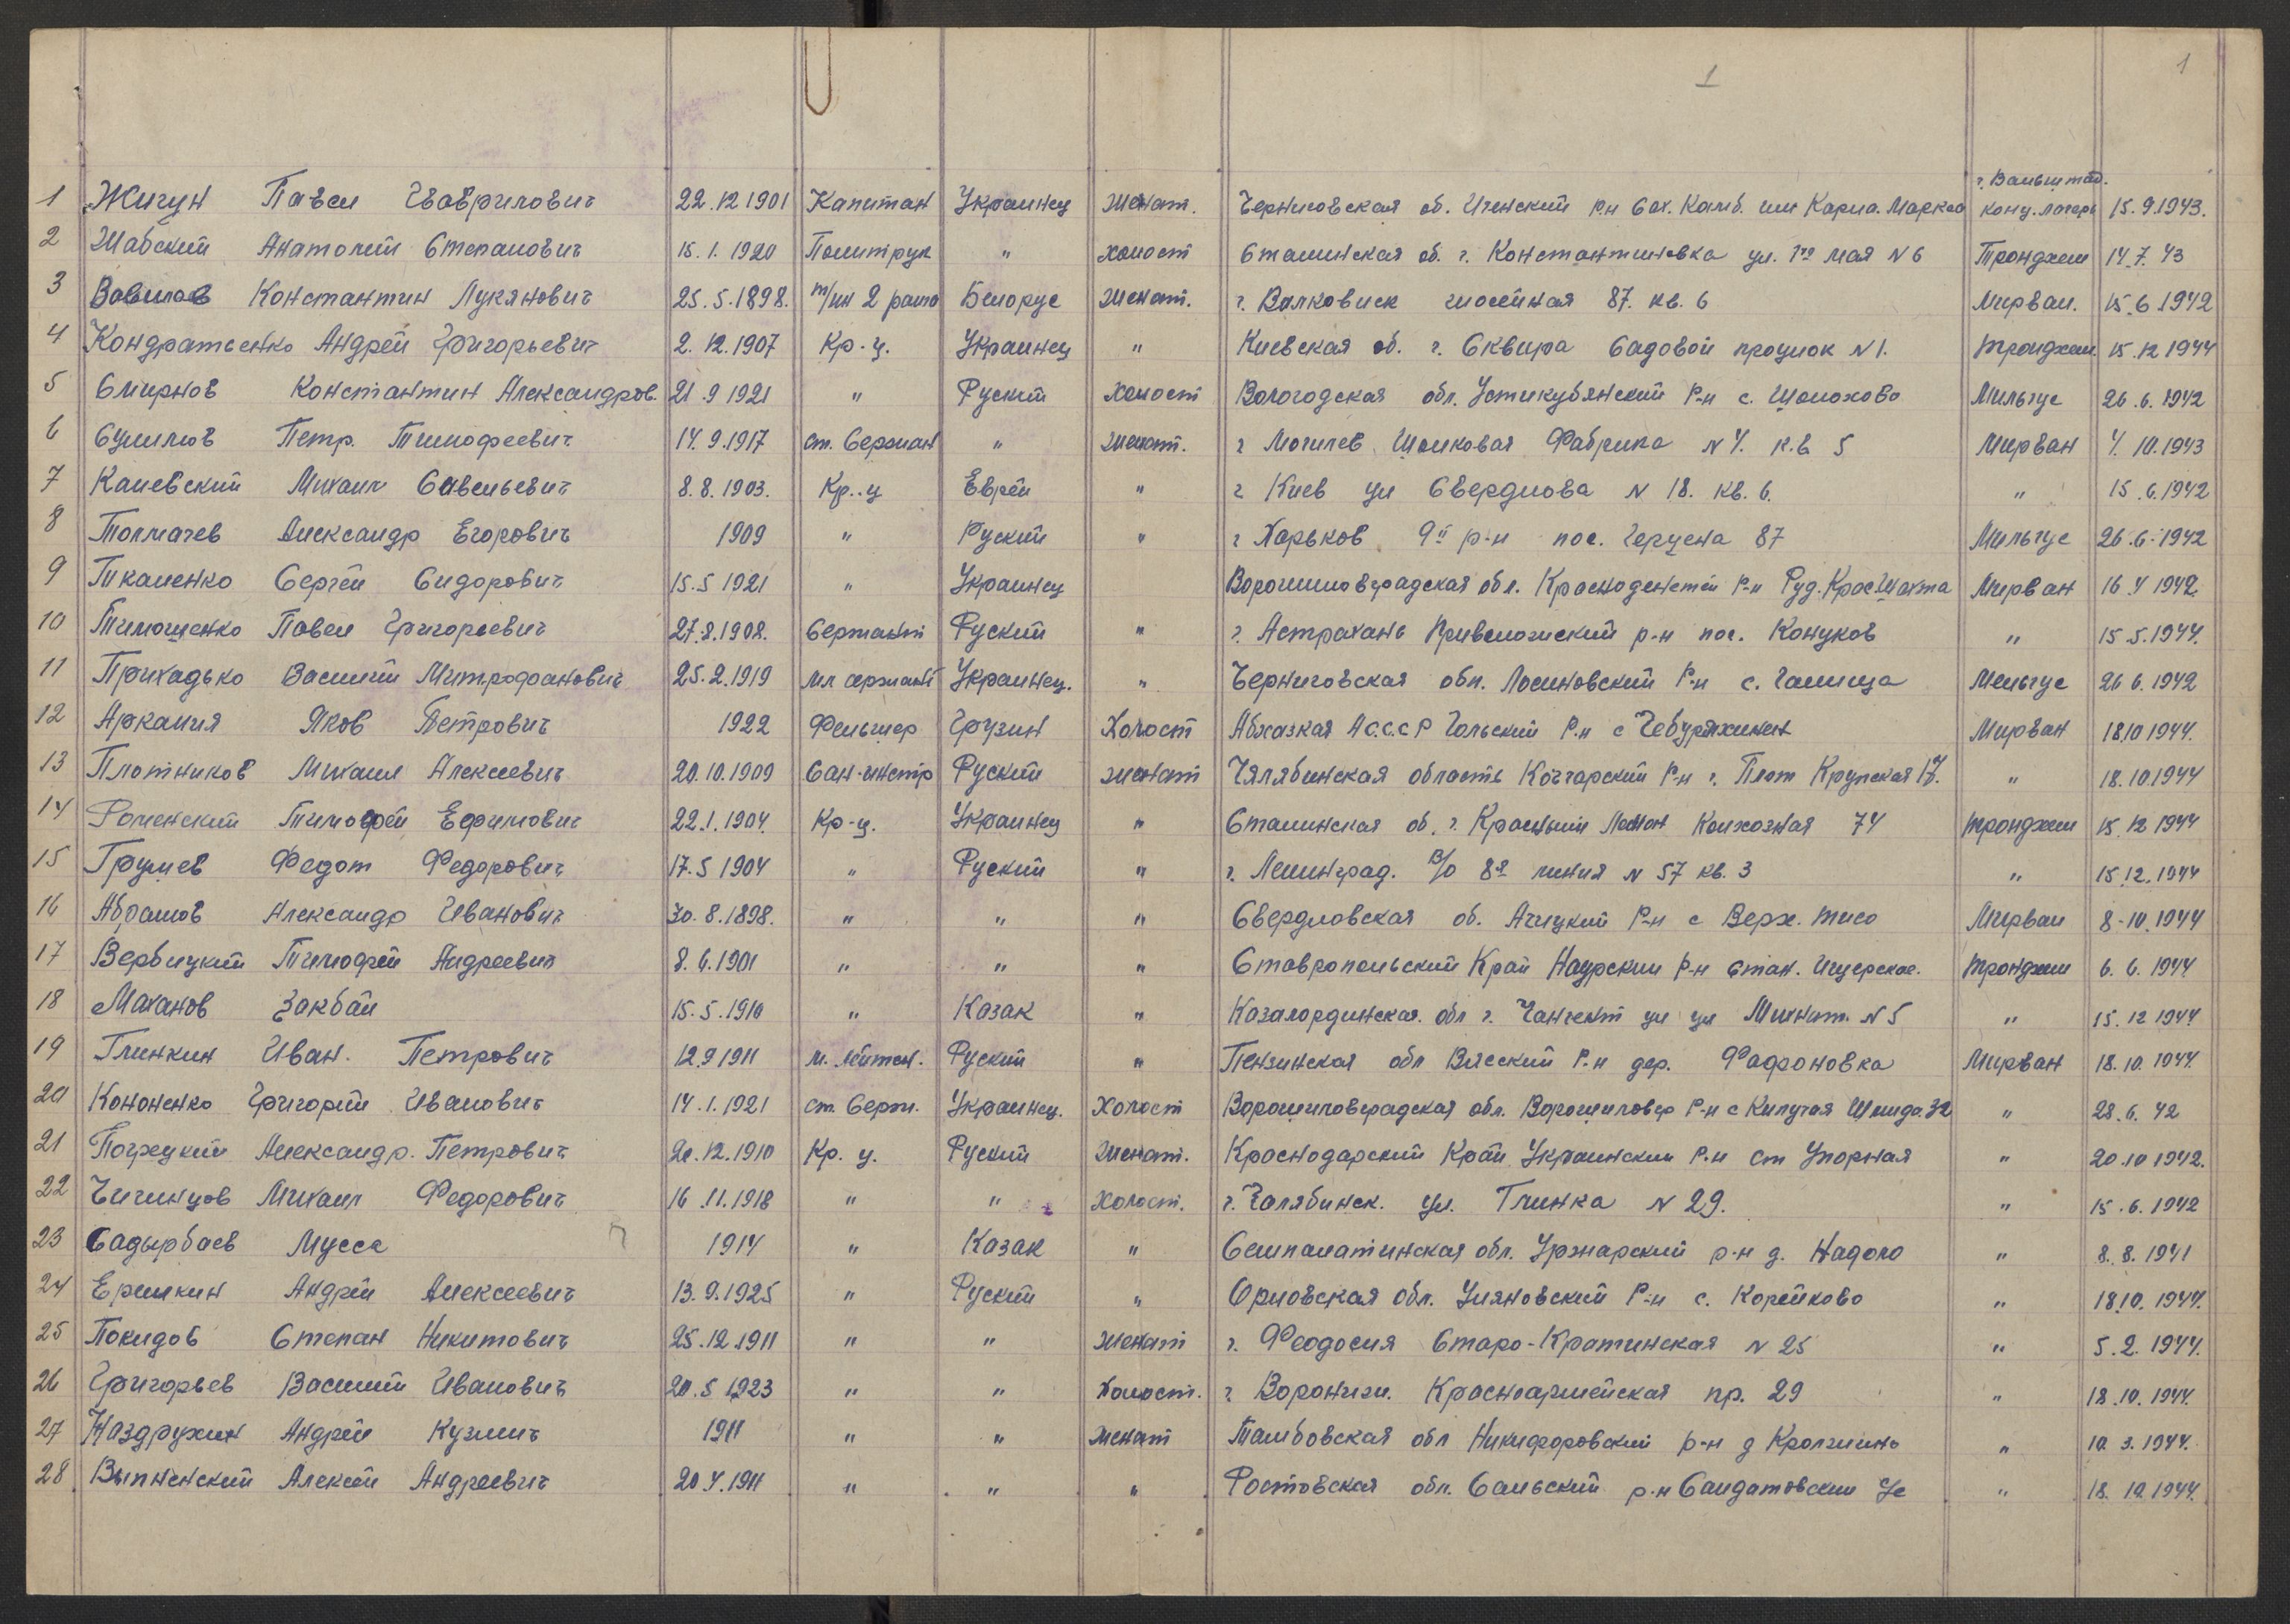 1 1
г. Вальштад.
1 Жигун Павел Гаврилович 22.12 1901 Капитан Украинец женат. Черниговская об. Иченский р-н Сах. Комб. им Карла. Маркса конц. лагерь 15.9.1943.
2 Шабский Анатолий Степанович 15.1.1920 Политрук " холост Сталинская об. г. Константиновка ул. 1го мая N 6 Тронджем 14.7.43
3 Вавилов Константин Лукянович 25.5.1898. т/ин 2 ранга Белорус женат. г. Валковиск шосейная 87. кв. 6 Мирван. 15.6.1942
4 Кондратенко Андрей Григорьевич 2.12.1907 Кр-ц. Украинец " Киевская об. г. Сквира Садовой проулок N 1. Тронджем. 15.12 1944
5 Смирнов Константин Александров. 21.9 1921 " Руский холост Вологодская обл. Устикубянский Р-н с. Шолохово Мильгус 26.6.1942
6 Сулимов Петр. Тимофеевич 14.9.1917 ст. Сержан " женат. г Могилев Шолковая Фабрика N 4. к.в 5 Мирван 4.10.1943
7 Каневский Михаил Савельевич 8.8.1903. Кр..ц Еврей " г Киев ул Свердлова N 18. кв. 6. " 15.6.1942
8 Толмачев Александр Егорович 1909 " Руский " г Харьков 9й р-н пос. Герцена 87 Мильгус 26.6.1942
9 Ткаченко Сергей Сидорович 15.5 1921 " Украинец Ворошиловградская обл. Р-н Руд. Крас.Шахта Мирван 16.4 1942.
10 Тимошенко Павел Григорьевич 27.8.1908. Сержант Руский " г. Астрахань р-н пос. Конуков " 15.5.1944.
11 Приходько Василий Митрофанович 25.2.1919 мл сержант Украинец. " Черниговская обл. Лосиновский Р-н с. Галица Мельгус 26 6.1942
12 Аркания Яков Петрович 1922 Фельшер Грузин Холост Абхазкая А С.С.С Р Гальский Р.н с Мирван 18.10 1944.
13 Плотников Михаил Алексеевич 20.10.1909 Сан-инстр Руский женат Челябинская область Кочгарский Р-н г. Пласт Крупская 17. " 18.10.1944
14 Роменский Тимофей Ефимович 22.1.1904. Кр-ц. Украинец " Сталинская об. г. Красный Лиман Колхозная 74 Тронджем 15.12 1944
15 Грушев Федот Федорович 17.5 1904 " Руский " г. Ленинград. В/О 8я линия N 57 кв. 3 " 15.12.1944
16 Абрамов Александр Иванович 30.8.1898. " " " Свердловская об. Ачицкий Р-н с Верх. Тисо Мирван 8-10.1944
17 Вербицкий Тимофей Андреевич 8.6.1901 " " " Ставропольский Край Наурский Р-н Стан. Ищерская. Тронджем 6.6.1944
18 Маханов Закбай 15.5.1910 " Казак " Казалординская. обл г. ул ул N 5 " 15.12 1944
19 Глинкин Иван. Петрович 12.9 1911 м. лейтен. Руский " Пензинская обл Вясский Р.н дер. Фафоновка Мирван 18.10.1944.
20 Кононенко Григорий Иванович 14.1.1921 ст. Серж. Украинец. Холост Ворошиловградская обл. Ворошиловгр Р-н с Кипучая Шмидо. 32 " 28.6.42
21 Погрецкий Александр. Петрович 20.12.1910 Кр. ц. Руский женат. Краснодарский Край Украинский Р.н ст Упорная " 20.10 1942.
22 Чичинцов Михаил Федорович 16.11.1918 " " Холост. г. Челябинск. ул. Глинка N 29. " 15.6.1942
23 Садырбаев Мусса 1914 " Казак " Семпалатинская обл. Уржарский р-н д. Надоло " 8.8.1941
24 Ермкин Андрей Алексеевич 13.9.1925 " Руский " Орловская обл. Уляновский Р-н с. Корейково " 18.10.1944.
25 Покидов Степан Никитович 25.12.1911 " " женат г. Феодосия Старо-Кратинская N 25 " 5.2.1944.
26 Григорьев Василий Иванович 20.5 1923 " " Холост. г Воронеж. Красноармейская пр. 29 " 18.10.1944.
27 Наздрухин Андрей Кузмич 1911 " " женат Тамбовская обл Никифоровский р-н д " 10.3.1944.
28 Выпненский Алексей Андреевич 20.4.1911 " " " Ростовская обл. Сальский р-н Сандатовский с/с " 18.10.1944.